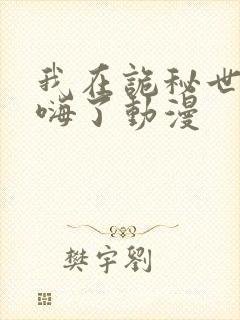 我在詭秘世
嗨了動漫
樊宇劉